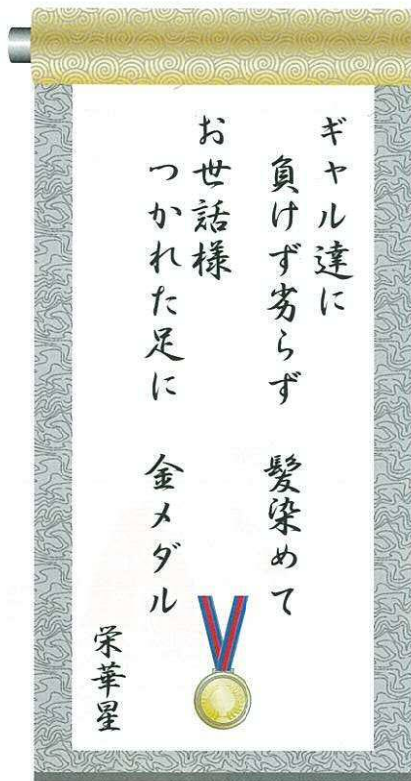 ギャル達に
負けず劣らず 髪染めて
お世話様
つかれた足に 金メダル
栄華星